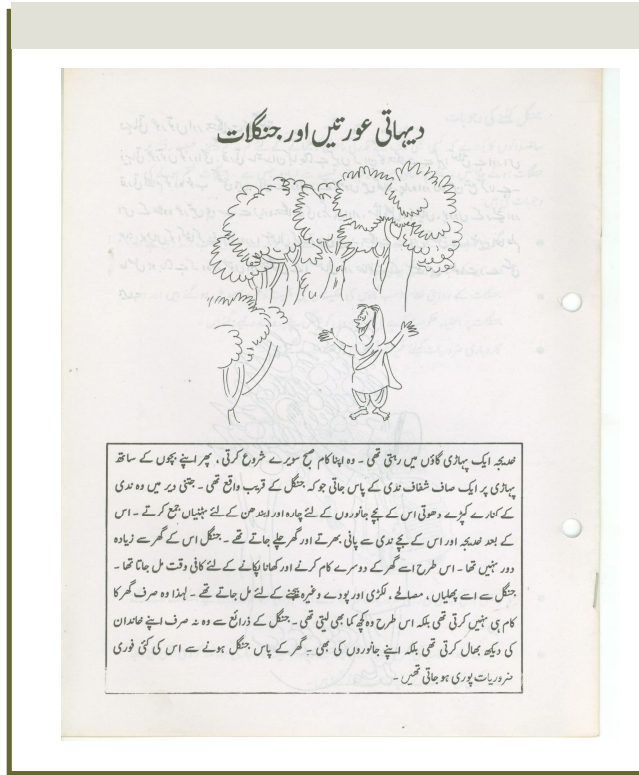 دیہاتی عورتیں اور جنگلات
خدیجہ ایک پہاڑی گاؤں میں رہتی تھی ۔ وہ اپنا کام صبح سویرے شروع کرتی ، پھر اپنے بچوں کے ساتھ
پہاڑی پر ایک صاف شفاف ندی کے پاس جاتی جو کہ جنگل کے قریب واقع تھی ۔ جتنی دیر میں وہ ندی
کے کنارے کپڑے دھوتی اس کے بچے جانوروں کے لئے چارہ اور ایندھن کے لئے ٹہنیاں جمع کرتے ۔ اس
کے بعد خدیجہ اور اس کے بچے ندی سے پانی بھرتے اور گھر چلے جاتے تھے ۔ جنگل اس کے گھر سے زیادہ
دور نہیں تھا ۔ اس طرح اسے گھر کے دوسرے کام کرنے اور کھانا پکانے کے لئے کافی وقت مل جاتا تھا ۔
جنگل سے اسے پھلیاں ، مصالحے ، لکڑی اور پودے وغیرہ بیچنے کے لئے مل جاتے تھے ۔ لہذا وہ صرف گھر کا
کام ہی نہیں کرتی تھی بلکہ اس طرح وہ کچھ کما بھی لیتی تھی ۔ جنگل کے ذرائع سے وہ نہ صرف اپنے خاندان
کی دیکھ بھال کرتی تھی بلکہ اپنے جانوروں کی بھی ۔ گھر کے پاس جنگل ہونے سے اس کی کئی فوری
ضروریات پوری ہو جاتی تھیں ۔